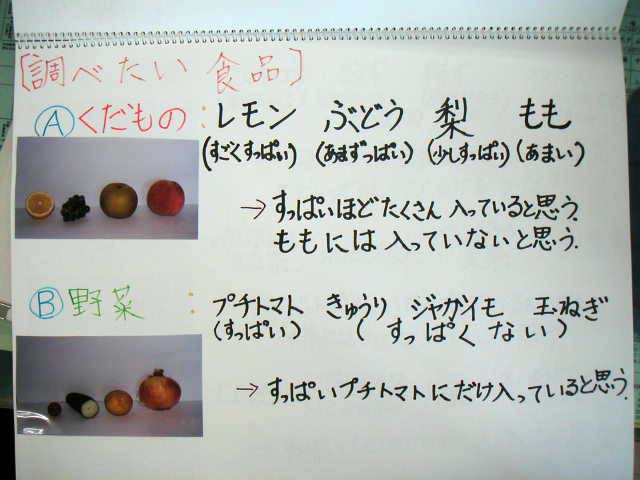 〔調べたい食品〕
Ⓐくだもの：レモン ぶどう 梨 もも
(すごくすっぱい) (あまずっぱい) (少しすっぱい) (あまい)
→すっぱいほどたくさん入っていると思う.
ももには入っていないと思う.
Ⓑ野菜：プチトマト きゅうり ジャガイモ 玉ねぎ
(すっぱい) (すっぱくない)
→すっぱいプチトマトにだけ入っていると思う.